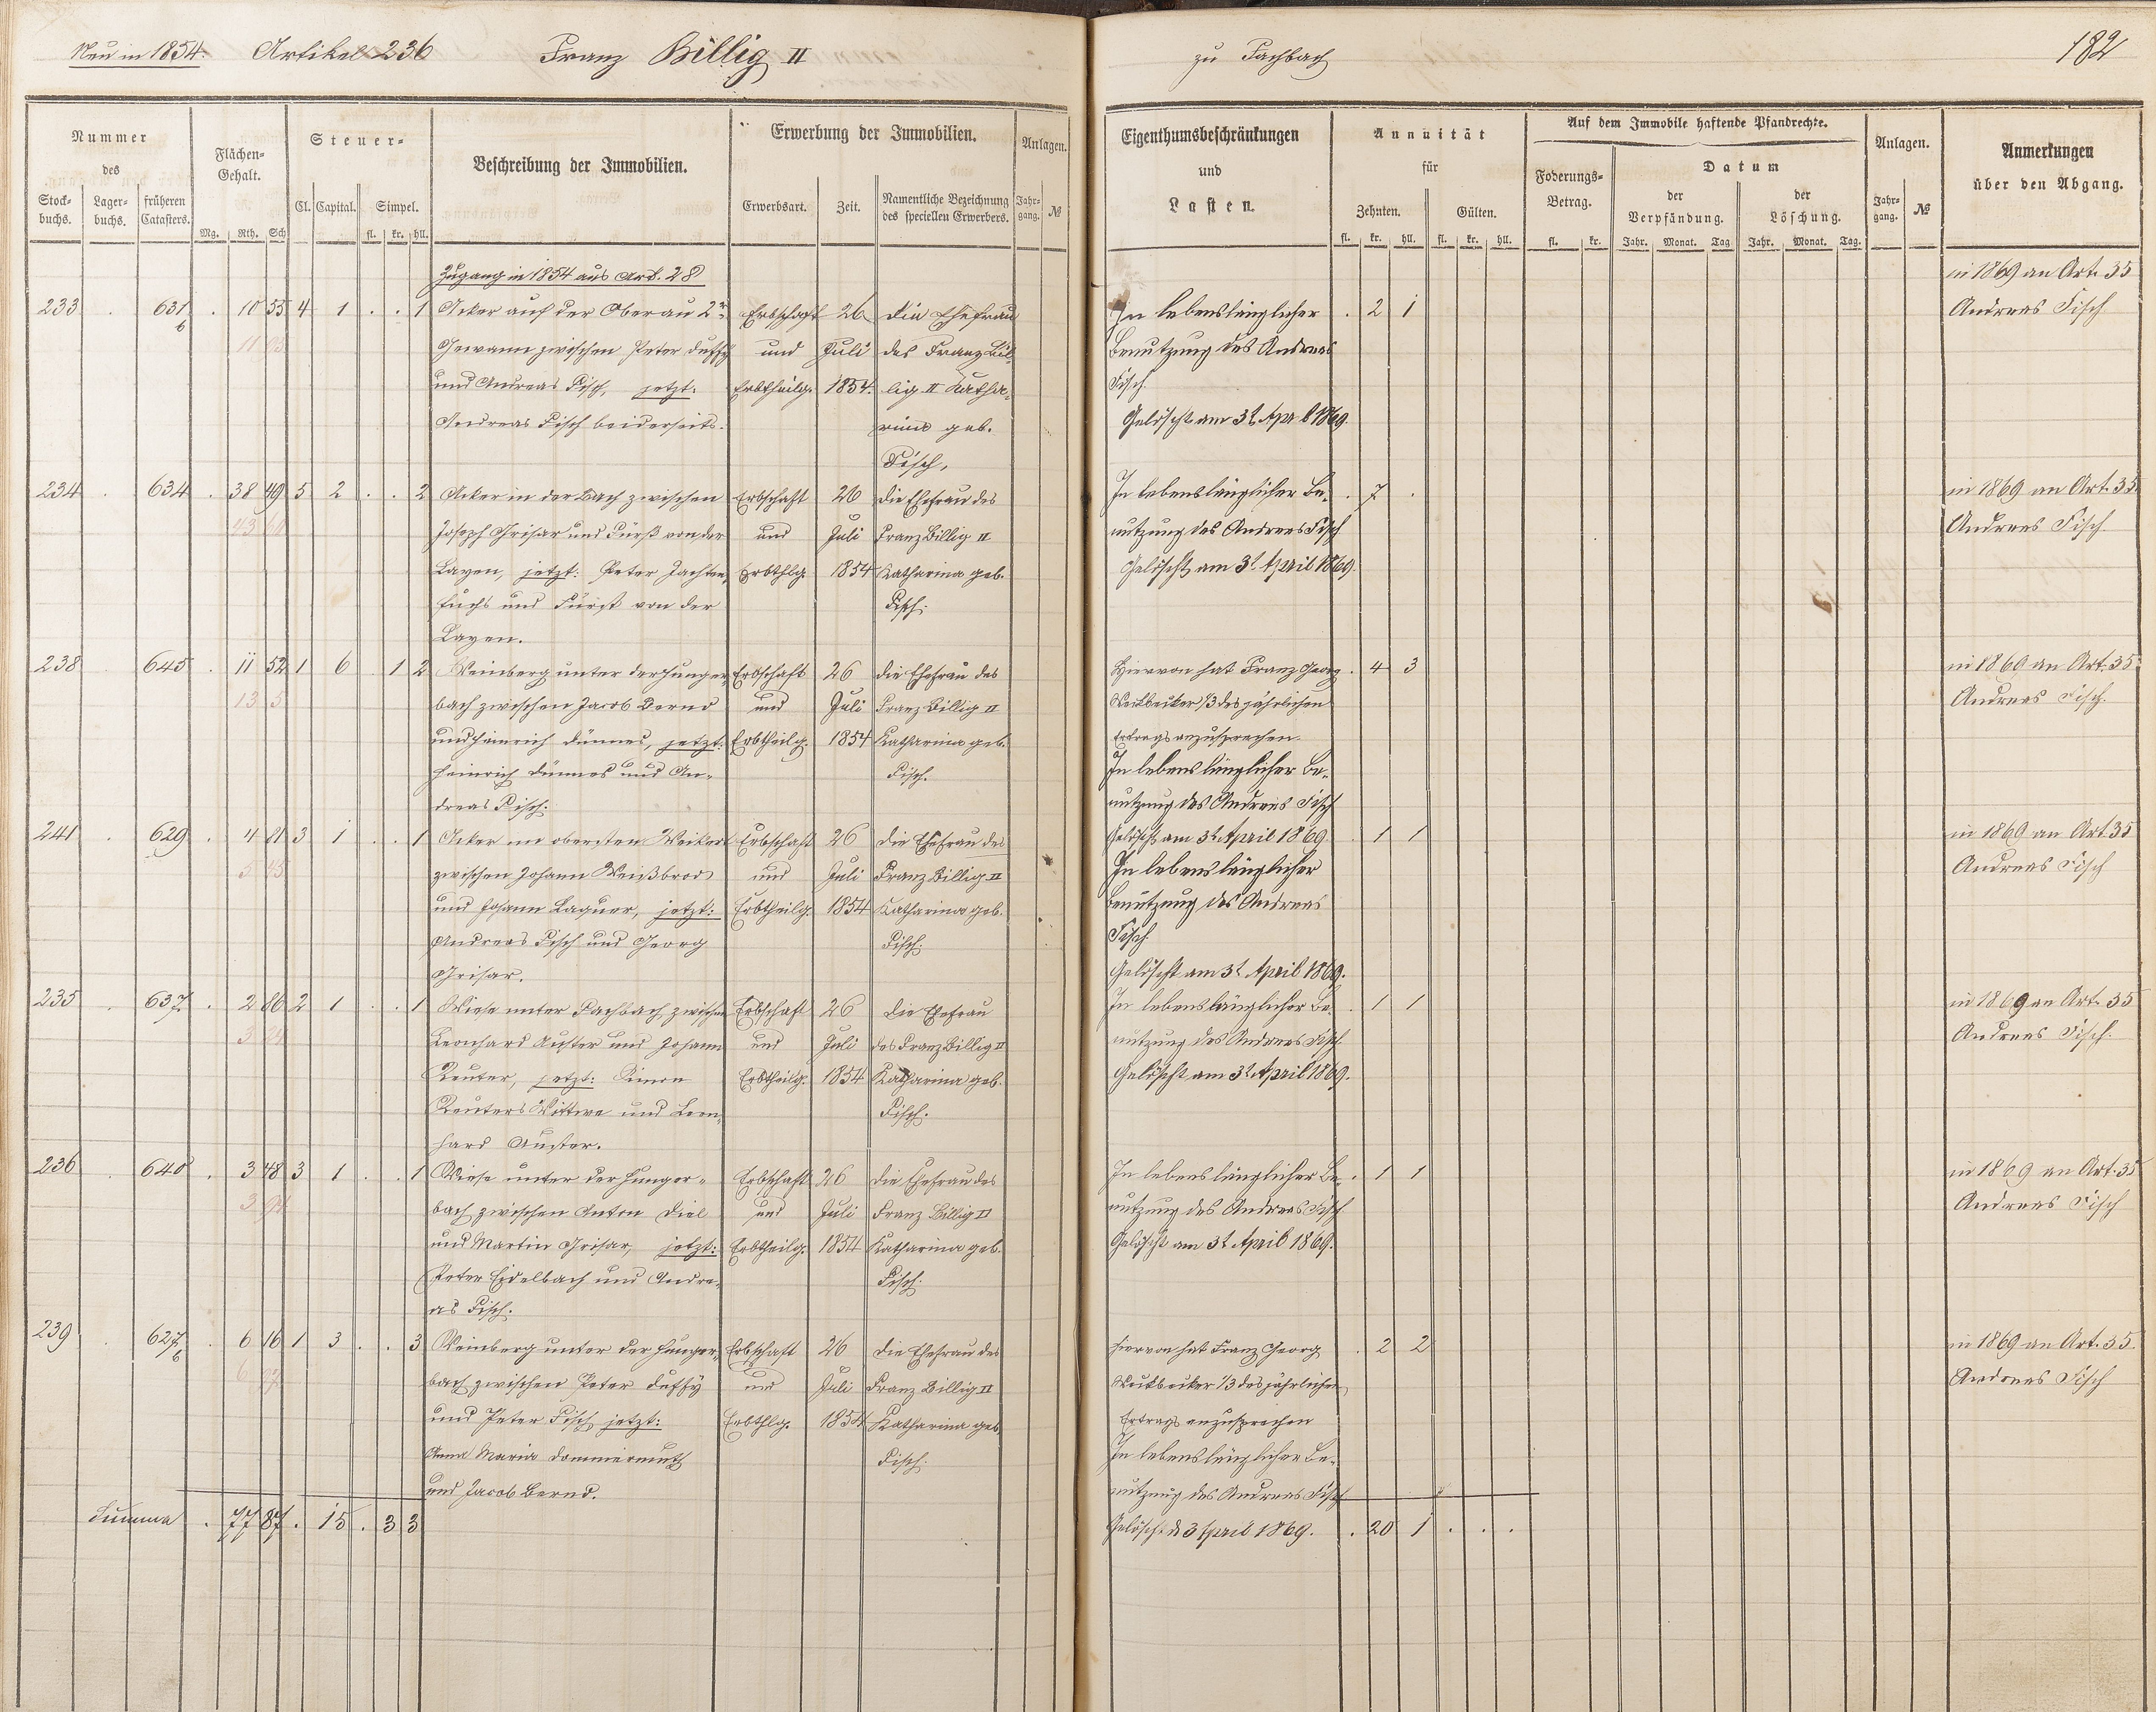 Neu in 1854. Artikel 236 Franz Billig II zu Fachbach 182
Nummer des
Stock-buchs. Lager-buchs. früheren Catasters.
Flächen-Gehalt.
Mg. Rth. Sch
Steuer-
Cl. Capital. Simpel.
fl. kr. hll.
Beschreibung der Immobilien.
Erwerbung der Immobilien.
Erwerbsart. Zeit. Namentliche Bezeichnung des speciellen Erwerbers.
Anlagen.
Jahr-gang. №
Eigenthumsbeschränkungen und Lasten.
Annuität für
Zehnten. Gülten.
fl. kr. hll. fl. kr. hll.
Auf dem Immobile haftende Pfandrechte.
Foderungs-Betrag.
fl. kr.
Datum
der Verpfändung. der Löschung.
Jahr. Monat. Tag Jahr. Monat. Tag.
Anlagen.
Jahr-gang. №
Anmerkungen über den Abgang.
Zugang in 1854 aus Art. 28 in 1869 an Art. 35
233 . 631 . 10 55 4 1 . . 1 Acker auf der Oberau 2r Erbschaft 26 die Ehefrau In lebenslänglicher . 2 1 Andreas Fisch
b Gewann zwischen Peter Deffy und Juli des Franz Bil- Benutzung des Andreas
und Andreas Fisch, jetzt: Erbtheilg. 1854. lig II Katha- Fisch.
Andreas Fisch beiderseits. rina geb. Gelöscht am 3t April 1869.
Fisch.
234 . 634 . 38 49 5 2 . . 2 Acker in der Bach zwischen Erbschaft 26 die Ehefrau des In lebenslänglicher Be- . 7 . in 1869 an Art. 35
43 Joseph Grisar und Fürst von der und Juli Franz Billig II nutzung des Andreas Fisch Andreas Fisch.
Layen, jetzt: Peter Erbthlg. 1854 Katharina geb. Gelöscht am 3t April 1869.
fuchs und Fürst von der Fisch.
Layen.
238 . 645 . 11 52 1 6 . 1 2 Weinberg unter der Hunger- Erbschaft 26 die Ehefrau des Hiervon hat Franz Georg . 4 3 in 1869 an Art. 35
13 5 bach zwischen Jacob Bernd und Juli Franz Billig II 1/3 des jährlichen Andreas Fisch.
und Heinrich Dünnes, jetzt: Erbtheilg. 1854 Katharina geb. Ertrags anzusprechen.
Heinrich Dünnes und An- Fisch. In lebenslänglicher Be-
dreas Fisch. nutzung des Andreas Fisch
241 . 629 . 4 81 3 1 . . 1 Acker im obersten Weiker Erbschaft 26 die Ehefrau des Gelöscht am 3t April 1869. . 1 1 in 1869 an Art 35
5 45 zwischen Johann Weißbrod und Juli Franz Billig II In lebenslänglicher Andreas Fisch
und Johann Laquer, jetzt: Erbtheilg. 1854 Katharina geb. Benutzung des Andreas
Andreas Fisch und Georg Fisch. Fisch.
Grisar. Gelöscht am 3t April 1869.
235 . 637 . 2 86 2 1 . . 1 Wiese unter Fachbach zwischen Erbschaft 26 die Ehefrau In lebenslänglicher Be- . 1 1 in 1869 an Art. 35
3 24 Leonhard Auster und Johann und Juli des Franz Billig II nutzung des Andreas Fisch. Andreas Fisch.
Reuter, jetzt: Simon Erbtheilg. 1854 Katharina geb. Gelöscht am 3t April 1869.
Reuters Wittwe und Leon- Fisch.
hard Auster.
236 . 640 . 3 48 3 1 . . 1 Wiese unter der Hunger- Erbschaft 26 die Ehefrau des In lebenslänglicher Be- . 1 1 in 1869 an Art. 35
3 94 bach zwischen Anton Diel und Juli Franz Billig II nutzung des Andreas Fisch Andreas Fisch
und Martin Grisar, jetzt: Erbtheilg. 1854 Katharina geb. Gelöscht am 3t April 1869.
Peter Eidelbach und Andre- Fisch.
as Fisch.
239 . 627 . 6 16 1 3 . . 3 Weinberg unter der Hunger- Erbschaft 26 die Ehefrau des Hiervon hat Franz Georg . 2 2 in 1869 an Art. 35.
b 6 97 bach zwischen Peter Deffy und Juli Franz Billig II 1/3 des jährlichen Andreas Fisch
und Peter Fisch jetzt: Erbthlg. 1854 Katharina geb. Ertrags anzusprechen
Anna Maria Dommermuth Fisch. In lebenslänglicher Be-
und Jacob Bernd. nutzung des Andreas Fisch
Summa . 77 87 . 15 . 3 3 Gelöscht d 3 April 1869. . 20 1 . . .